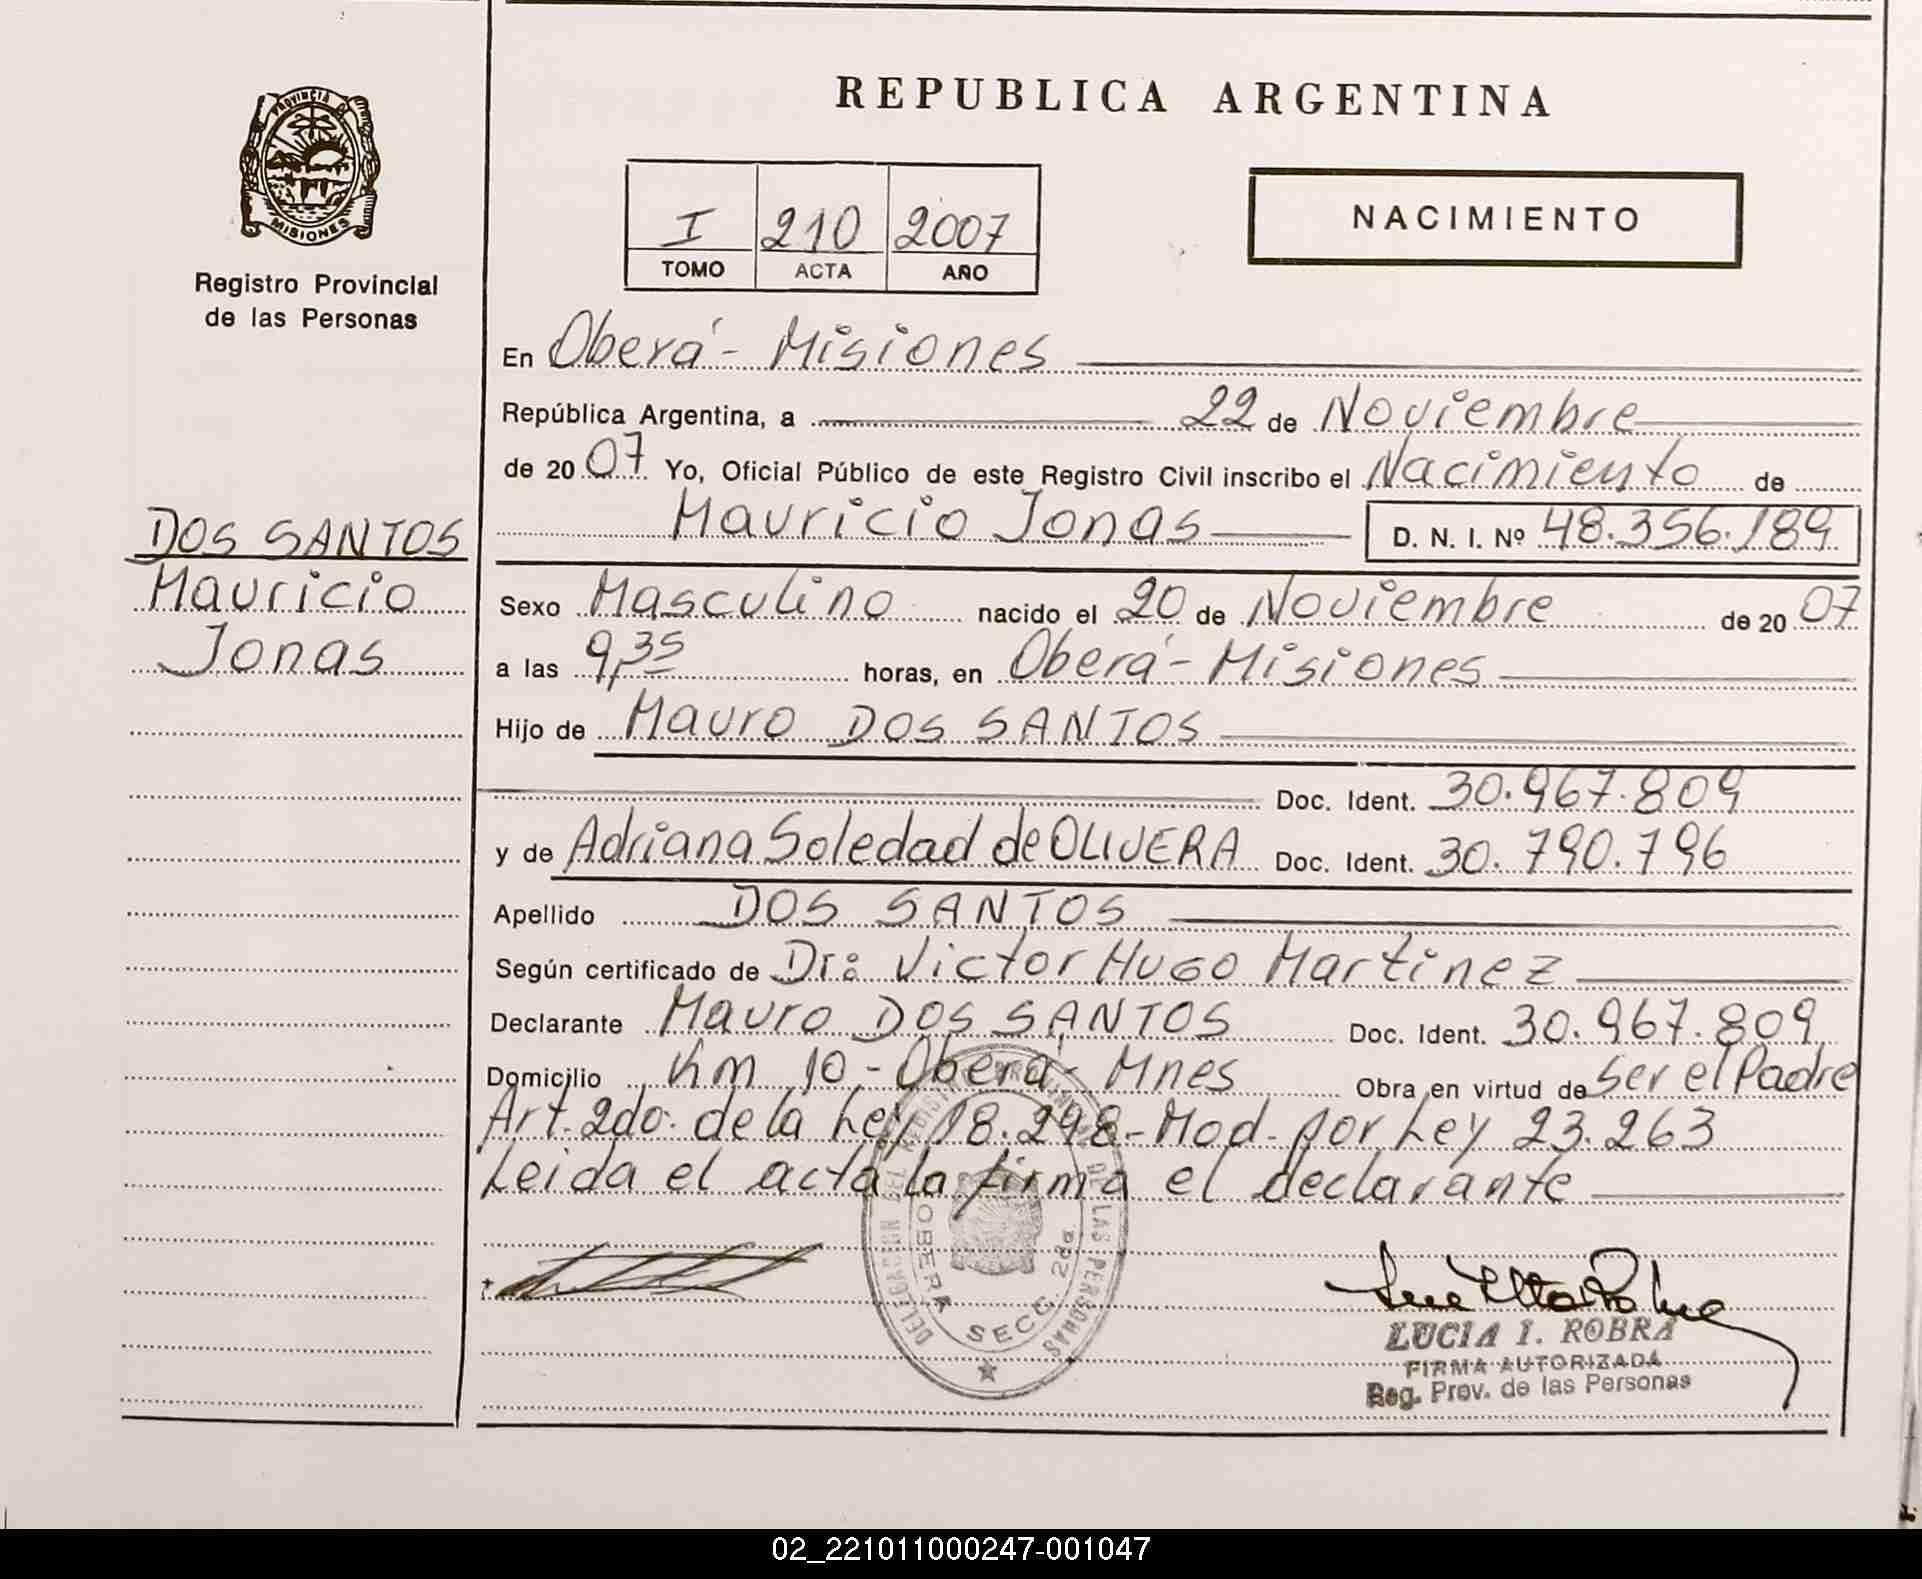 REPUBLICA ARGENTINA
PROVINCIA DE
MISIONES
Registro Provincial
de las Personas
I 210 2007
TOMO ACTA AÑO
NACIMIENTO
En Oberá - Misiones
República Argentina, a 22 de Noviembre
de 20 07 Yo, Oficial Público de este Registro Civil inscribo el Nacimiento de
Mauricio Jonas D. N. I. Nº 48.356.189
DOS SANTOS
Mauricio
Jonas
Sexo Masculino nacido el 20 de Noviembre de 20 07
a las 9,35 horas, en Oberá - Misiones
Hijo de Mauro DOS SANTOS
Doc. Ident. 30.967.809
y de Adriana Soledad de OLIVERA Doc. Ident. 30.790.796
Apellido DOS SANTOS
Según certificado de Dr: Victor Hugo Martinez
Declarante Mauro DOS SANTOS Doc. Ident. 30.967.809
Domicilio Km 10 - Oberá - Mnes Obra en virtud de Ser el Padre
Art. 2do. de la Ley 18.298 - Mod. por Ley 23.263
Leida el acta la firma el declarante
DELEGACION DEL REGISTRO PROVINCIAL DE LAS PERSONAS
OBERA SECC. 2da.
LUCIA I. ROBRA
FIRMA AUTORIZADA
Reg. Prov. de las Personas
02_221011000247-001047